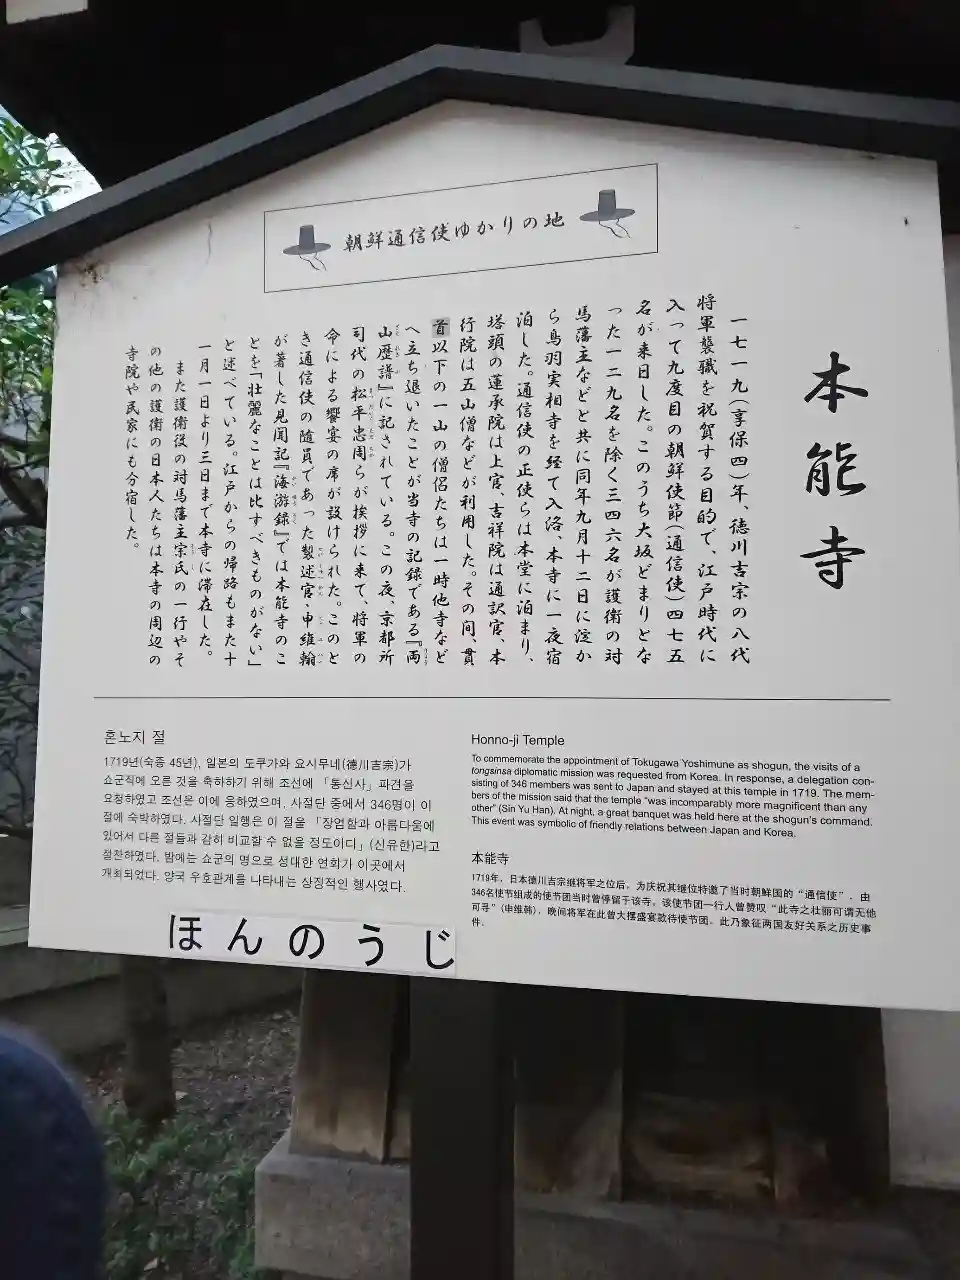 朝鮮通信使ゆかりの地
本能寺
一七一九(享保四)年、徳川吉宗の八代
将軍襲職を祝賀する目的で、江戸時代に
入って九度目の朝鮮使節(通信使)四七五
名が来日した。このうち大坂どまりとな
った一二九名を除く三四六名が護衛の対
馬藩主などと共に同年九月十二日に淀か
ら鳥羽実相寺を経て入洛、本寺に一夜宿
泊した。通信使の正使らは本堂に泊まり、
塔頭の蓮承院は上官、吉祥院は通訳官、本
行院は五山僧などが利用した。その間、貫
首以下の一山の僧侶たちは一時他寺など
へ立ち退いたことが当寺の記録である『両
山歴譜』に記されている。この夜、京都所
司代の松平忠周らが挨拶に来て、将軍の
命による饗宴の席が設けられた。このと
き通信使の随員であった製述官・申維翰
が著した見聞記『海游録』では本能寺のこ
とを「壮麗なことは比すべきものがない」
と述べている。江戸からの帰路もまた十
一月一日より三日まで本寺に滞在した。
また護衛役の対馬藩主宗氏の一行やそ
の他の護衛の日本人たちは本寺の周辺の
寺院や民家にも分宿した。
혼노지 절
1719년(숙종 45년), 일본의 도쿠가와 요시무네(德川吉宗)가
쇼군직에 오른 것을 축하하기 위해 조선에 「통신사」파견을
요청하였고 조선은 이에 응하였으며, 사절단 중에서 346명이 이
절에 숙박하였다. 사절단 일행은 이 절을 「장엄함과 아름다움에
있어서 다른 절들과 감히 비교할 수 없을 정도이다」(신유한)라고
절찬하였다. 밤에는 쇼군의 명으로 성대한 연회가 이곳에서
개최되었다. 양국 우호관계를 나타내는 상징적인 행사였다.
Honno-ji Temple
To commemorate the appointment of Tokugawa Yoshimune as shogun, the visits of a
tongsinsa diplomatic mission was requested from Korea. In response, a delegation con-
sisting of 346 members was sent to Japan and stayed at this temple in 1719. The mem-
bers of the mission said that the temple "was incomparably more magnificent than any
other" (Sin Yu Han). At night, a great banquet was held here at the shogun's command.
This event was symbolic of friendly relations between Japan and Korea.
本能寺
1719年，日本德川吉宗继将军之位后，为庆祝其继位特邀了当时朝鲜国的“通信使”，由
346名使节组成的使节团当时曾停留于该寺。该使节团一行人曾赞叹“此寺之壮丽可谓无他
可寻”(申维韩)，晚间将军在此曾大摆盛宴款待使节团。此乃象征两国友好关系之历史事
件。
ほんのうじ